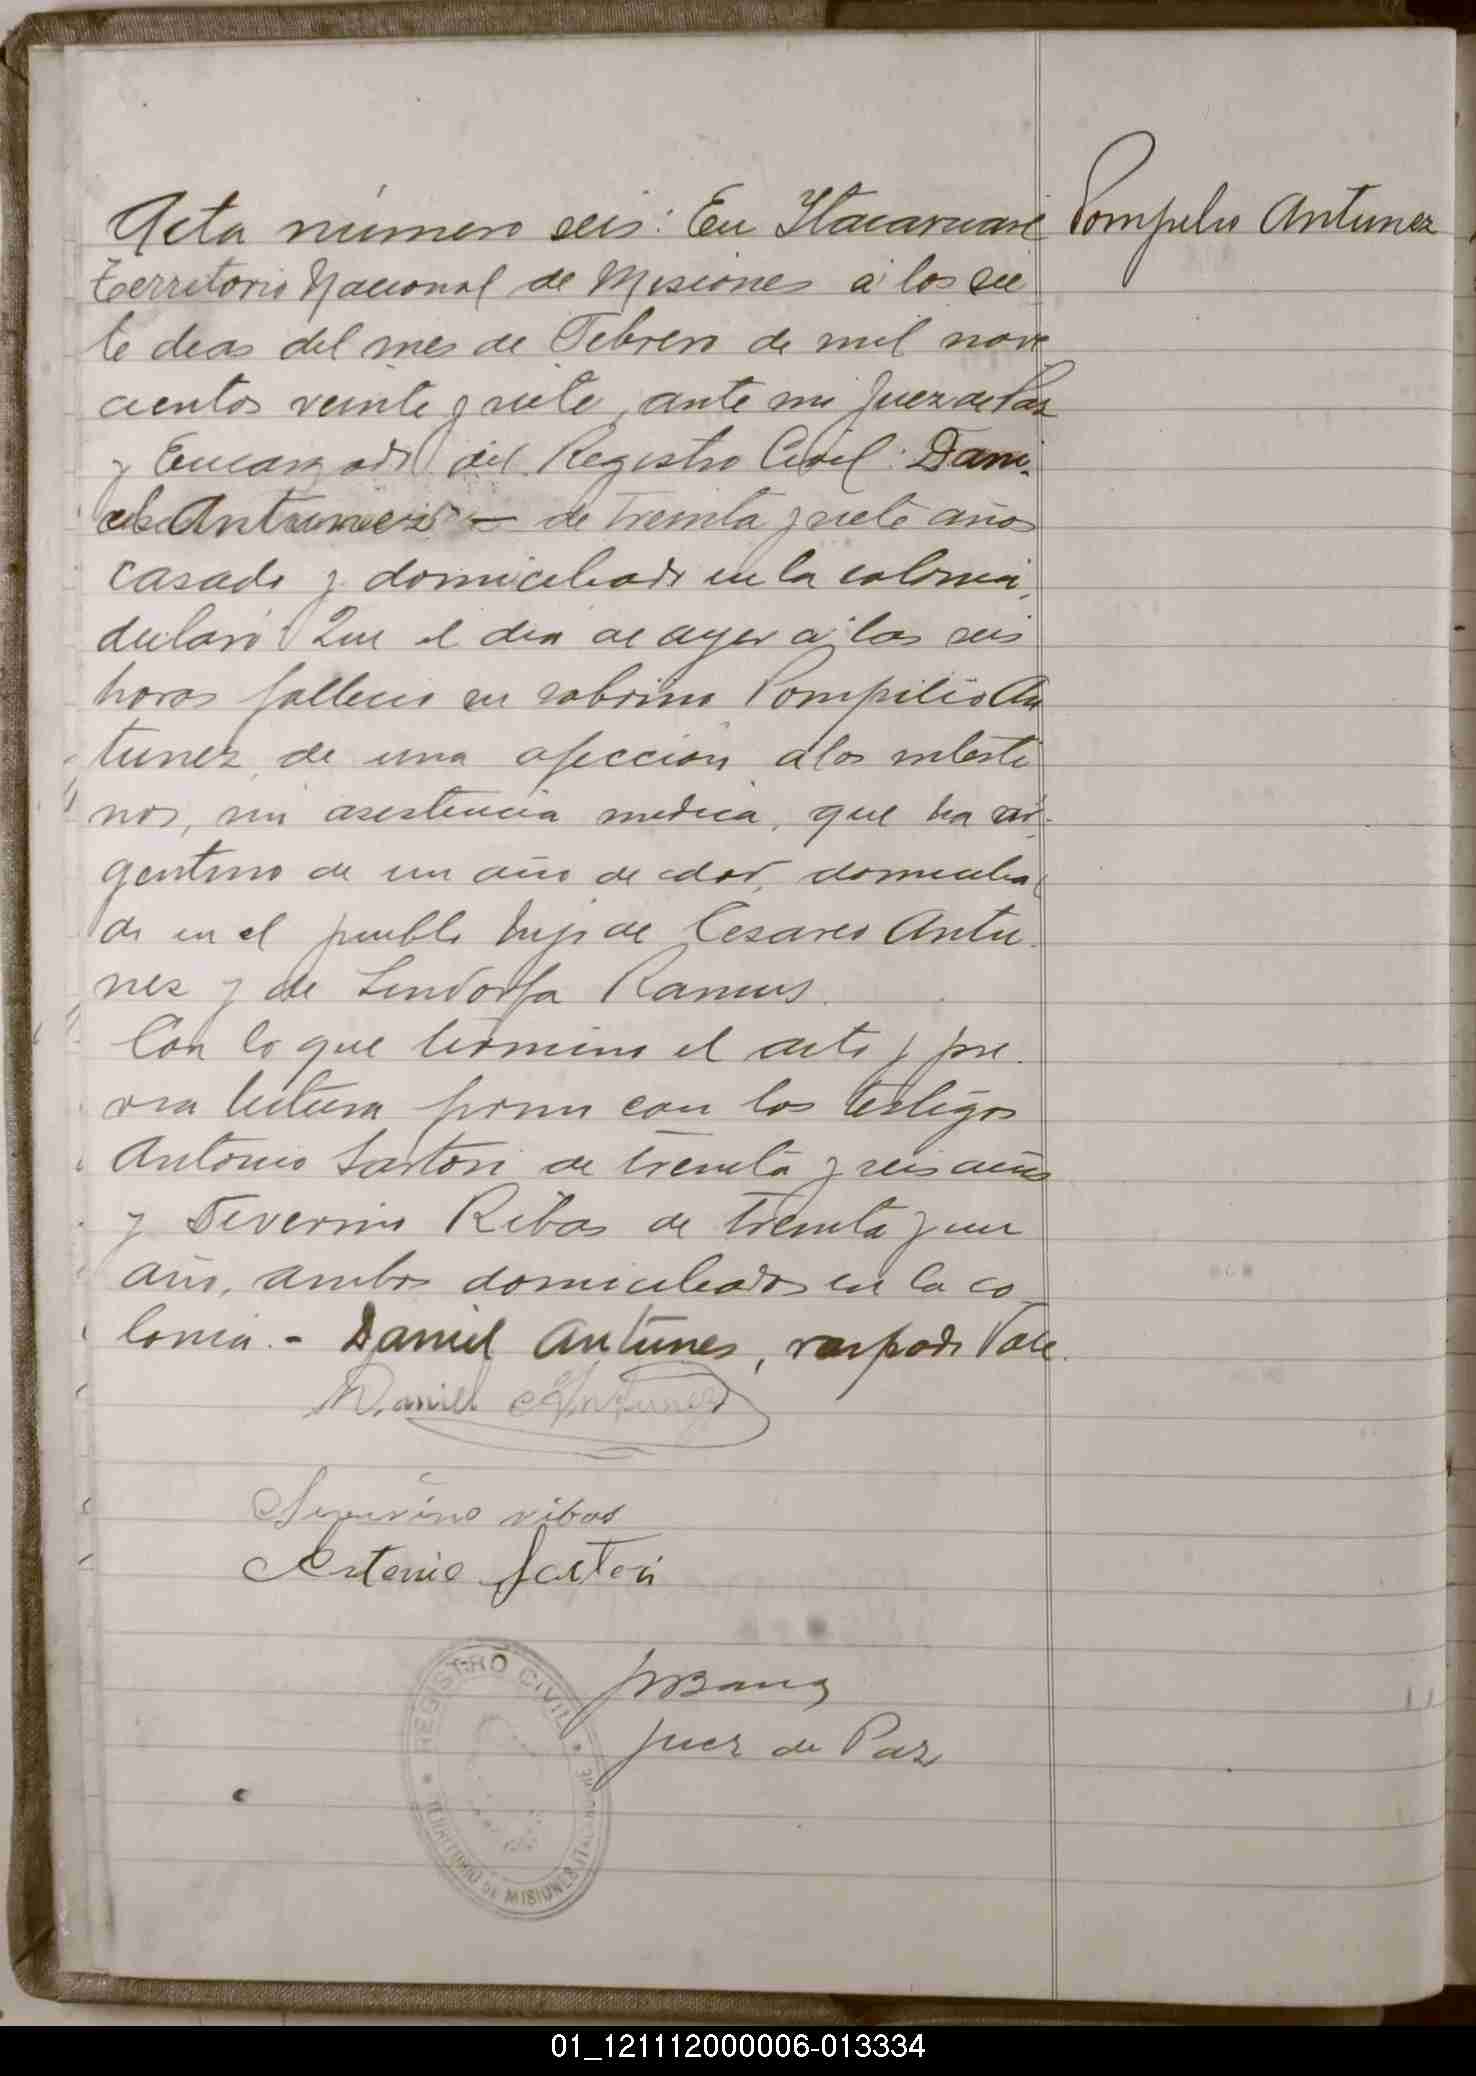 Acta número seis: En Itacaruaré
Pompilio Antunez
Territorio Nacional de Misiones a los sie
te dias del mes de Febrero de mil nove
cientos veinte y siete, ante mi Juez de Paz
y Encargado del Registro Civil: Dani-
el Antunez — de treinta y siete años
casado y domiciliado en la colonia,
declaró: Que el dia de ayer a las seis
horas fallecio su sobrino Pompilio An
tunez, de una afeccion a los intesti
nos, sin asistencia medica, que era ar-
gentino de un año de edad, domicilia
do en el pueblo hijo de Cesareo Antu-
nez y de Lindorfa Ramus.
Con lo que termino el acto y pre-
via lectura firmo con los testigos
Antonio Sartori de treinta y seis años
y Severino Ribas de treinta y un
año, ambos domiciliados en la co-
lonia. - Daniel Antunes, raspado Vale.
Daniel Antunez
Severino ribas
Antonio Sartori
Juez de Paz
REGISTRO CIVIL
TERRITORIO DE MISIONES ITACARUARE
01_121112000006-013334